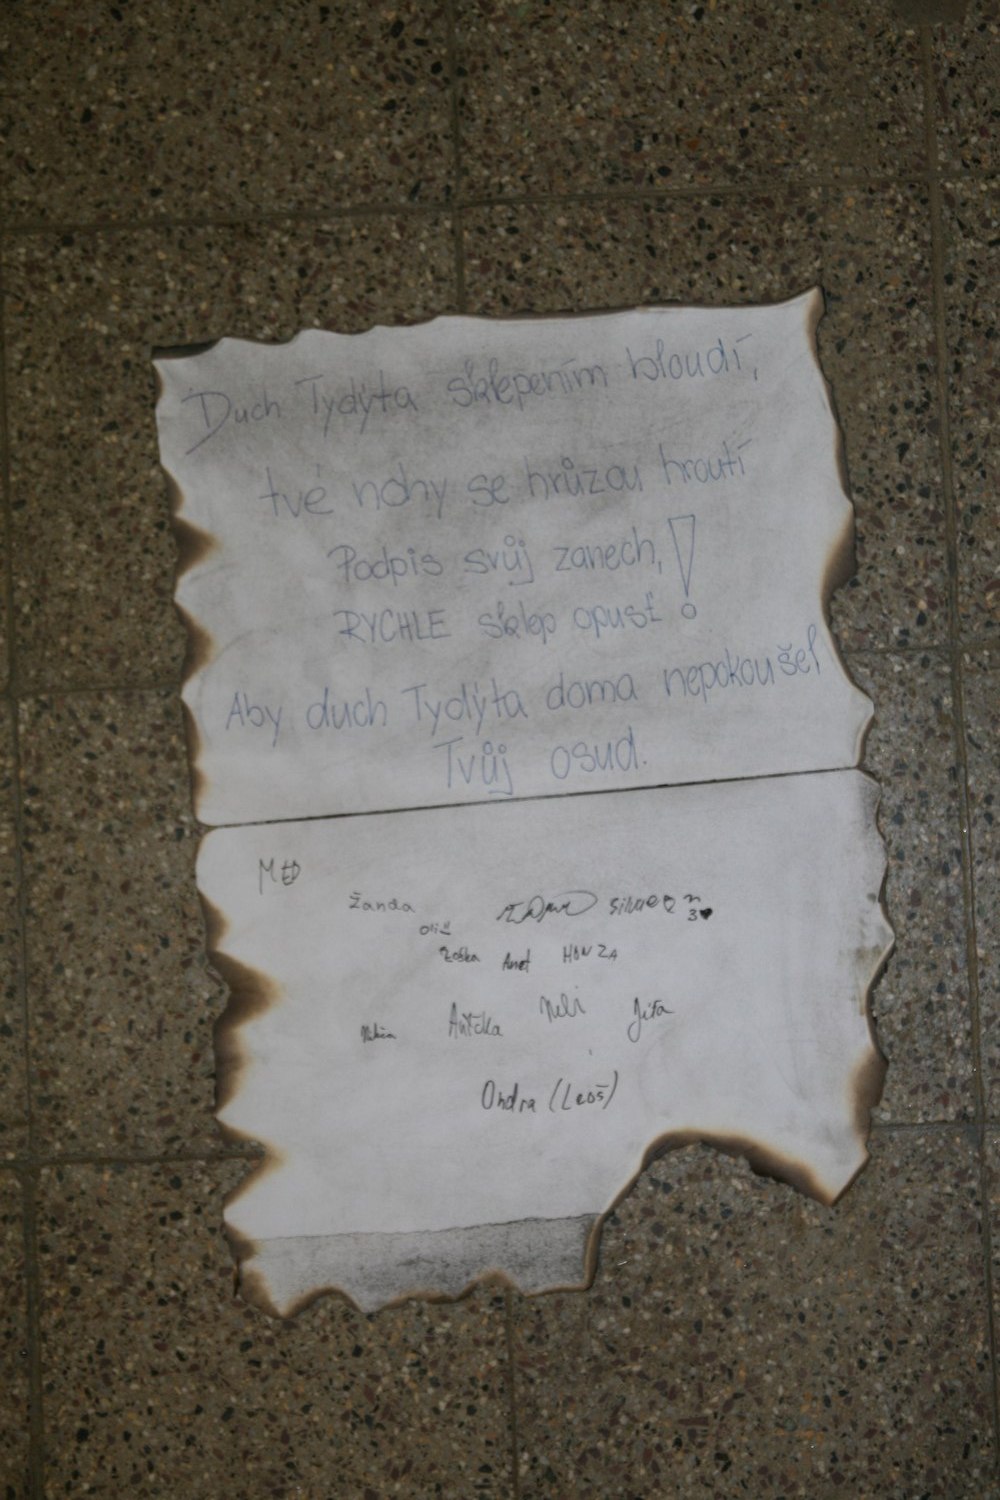 Duch Tydýta sklepením bloudí,
tvé nohy se hrůzou hroutí
Podpis svůj zanech,
RYCHLE sklep opusť!
Aby duch Tydýta doma nepokoušel
Tvůj osud.
Žanda
Anet HONZA
Anička Jíťa
Ondra (Leoš)